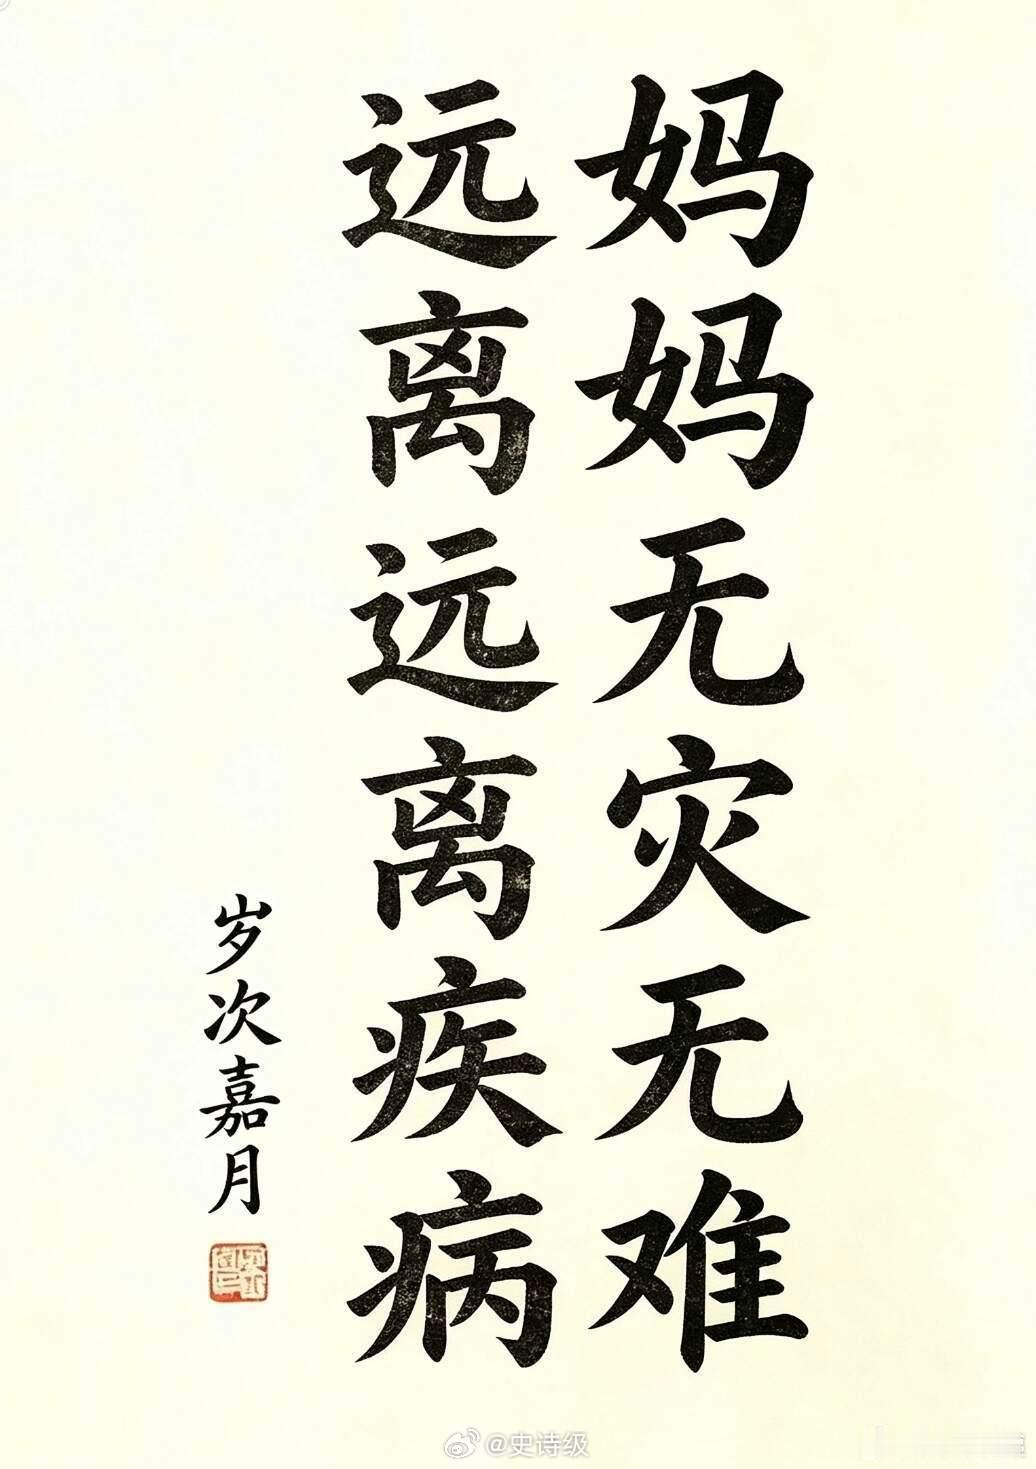 妈妈无灾无难
远离远离疾病
岁次嘉月
@史诗级